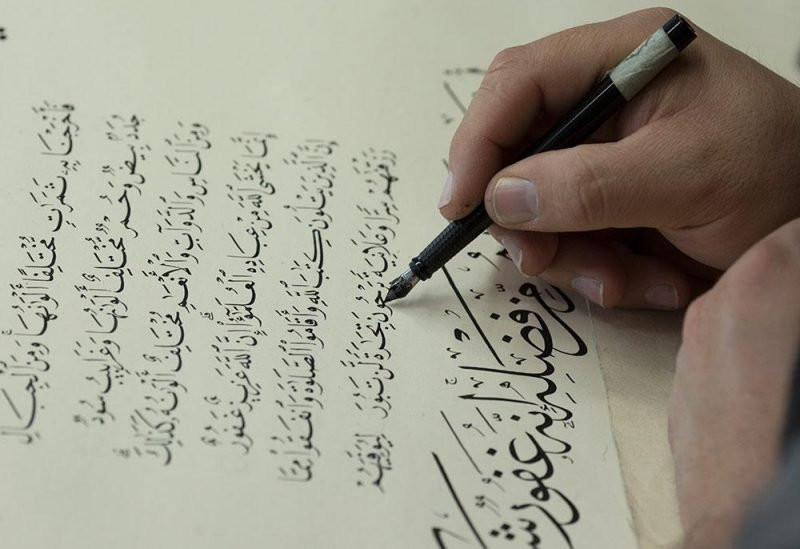 فَأَخْرَجْنَا بِهِ ثَمَرَٰتٍ مُّخْتَلِفًا أَلْوَٰنُهَا وَمِنَ الْجِبَالِ
جُدَدٌ بِيضٌ وَحُمْرٌ مُّخْتَلِفٌ أَلْوَٰنُهَا وَغَرَابِيبُ سُودٌ
وَمِنَ النَّاسِ وَالدَّوَابِّ وَالْأَنْعَٰمِ مُخْتَلِفٌ أَلْوَٰنُهُ كَذَٰلِكَ
إِنَّمَا يَخْشَى اللَّهَ مِنْ عِبَادِهِ الْعُلَمَٰٓؤُا إِنَّ اللَّهَ عَزِيزٌ غَفُورٌ
إِنَّ الَّذِينَ يَتْلُونَ كِتَٰبَ اللَّهِ وَأَقَامُوا الصَّلَوٰةَ وَأَنفَقُوا مِمَّا
رَزَقْنَٰهُمْ سِرًّا وَعَلَانِيَةً يَرْجُونَ تِجَٰرَةً لَّن تَبُورَ لِيُوَفِّيَهُمْ
مِّن فَضْلِهِ إِنَّهُ غَفُورٌ